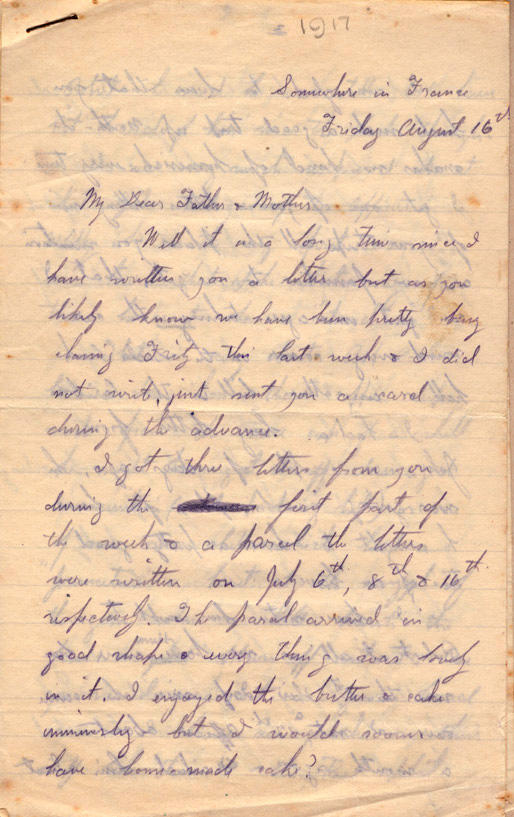 1917
Somewhere in France
Friday August 16th
My Dear Father & Mother
Well it is a long time since I
have written you a letter but as you
likely know we have been pretty busy
chasing Fritz this last week & I did
not write, just sent you a card
during the advance.
I got three letters from you
during the first part of
the week & a parcel the letters
were written on July 6th, 8th & 16th
respectively. The parcel arrived in
good shape & every thing was lovely
in it. I enjoyed the butter & cake
immensely but I would sooner
have home made cake?